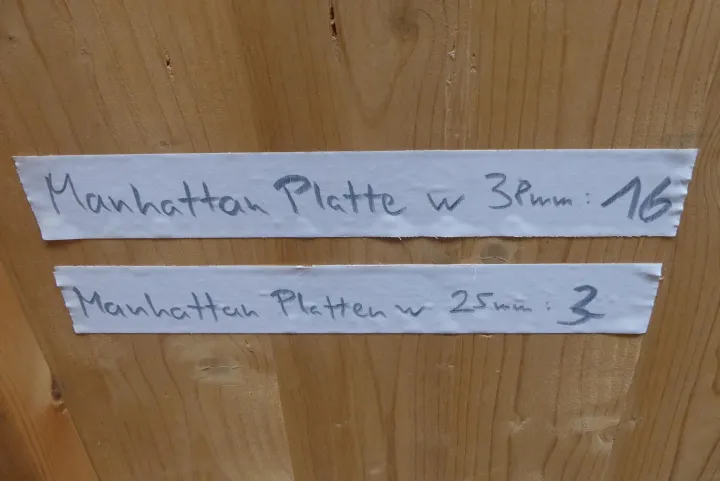 Manhattan Platte w 38mm: 16
Manhattan Platten w 25mm: 3